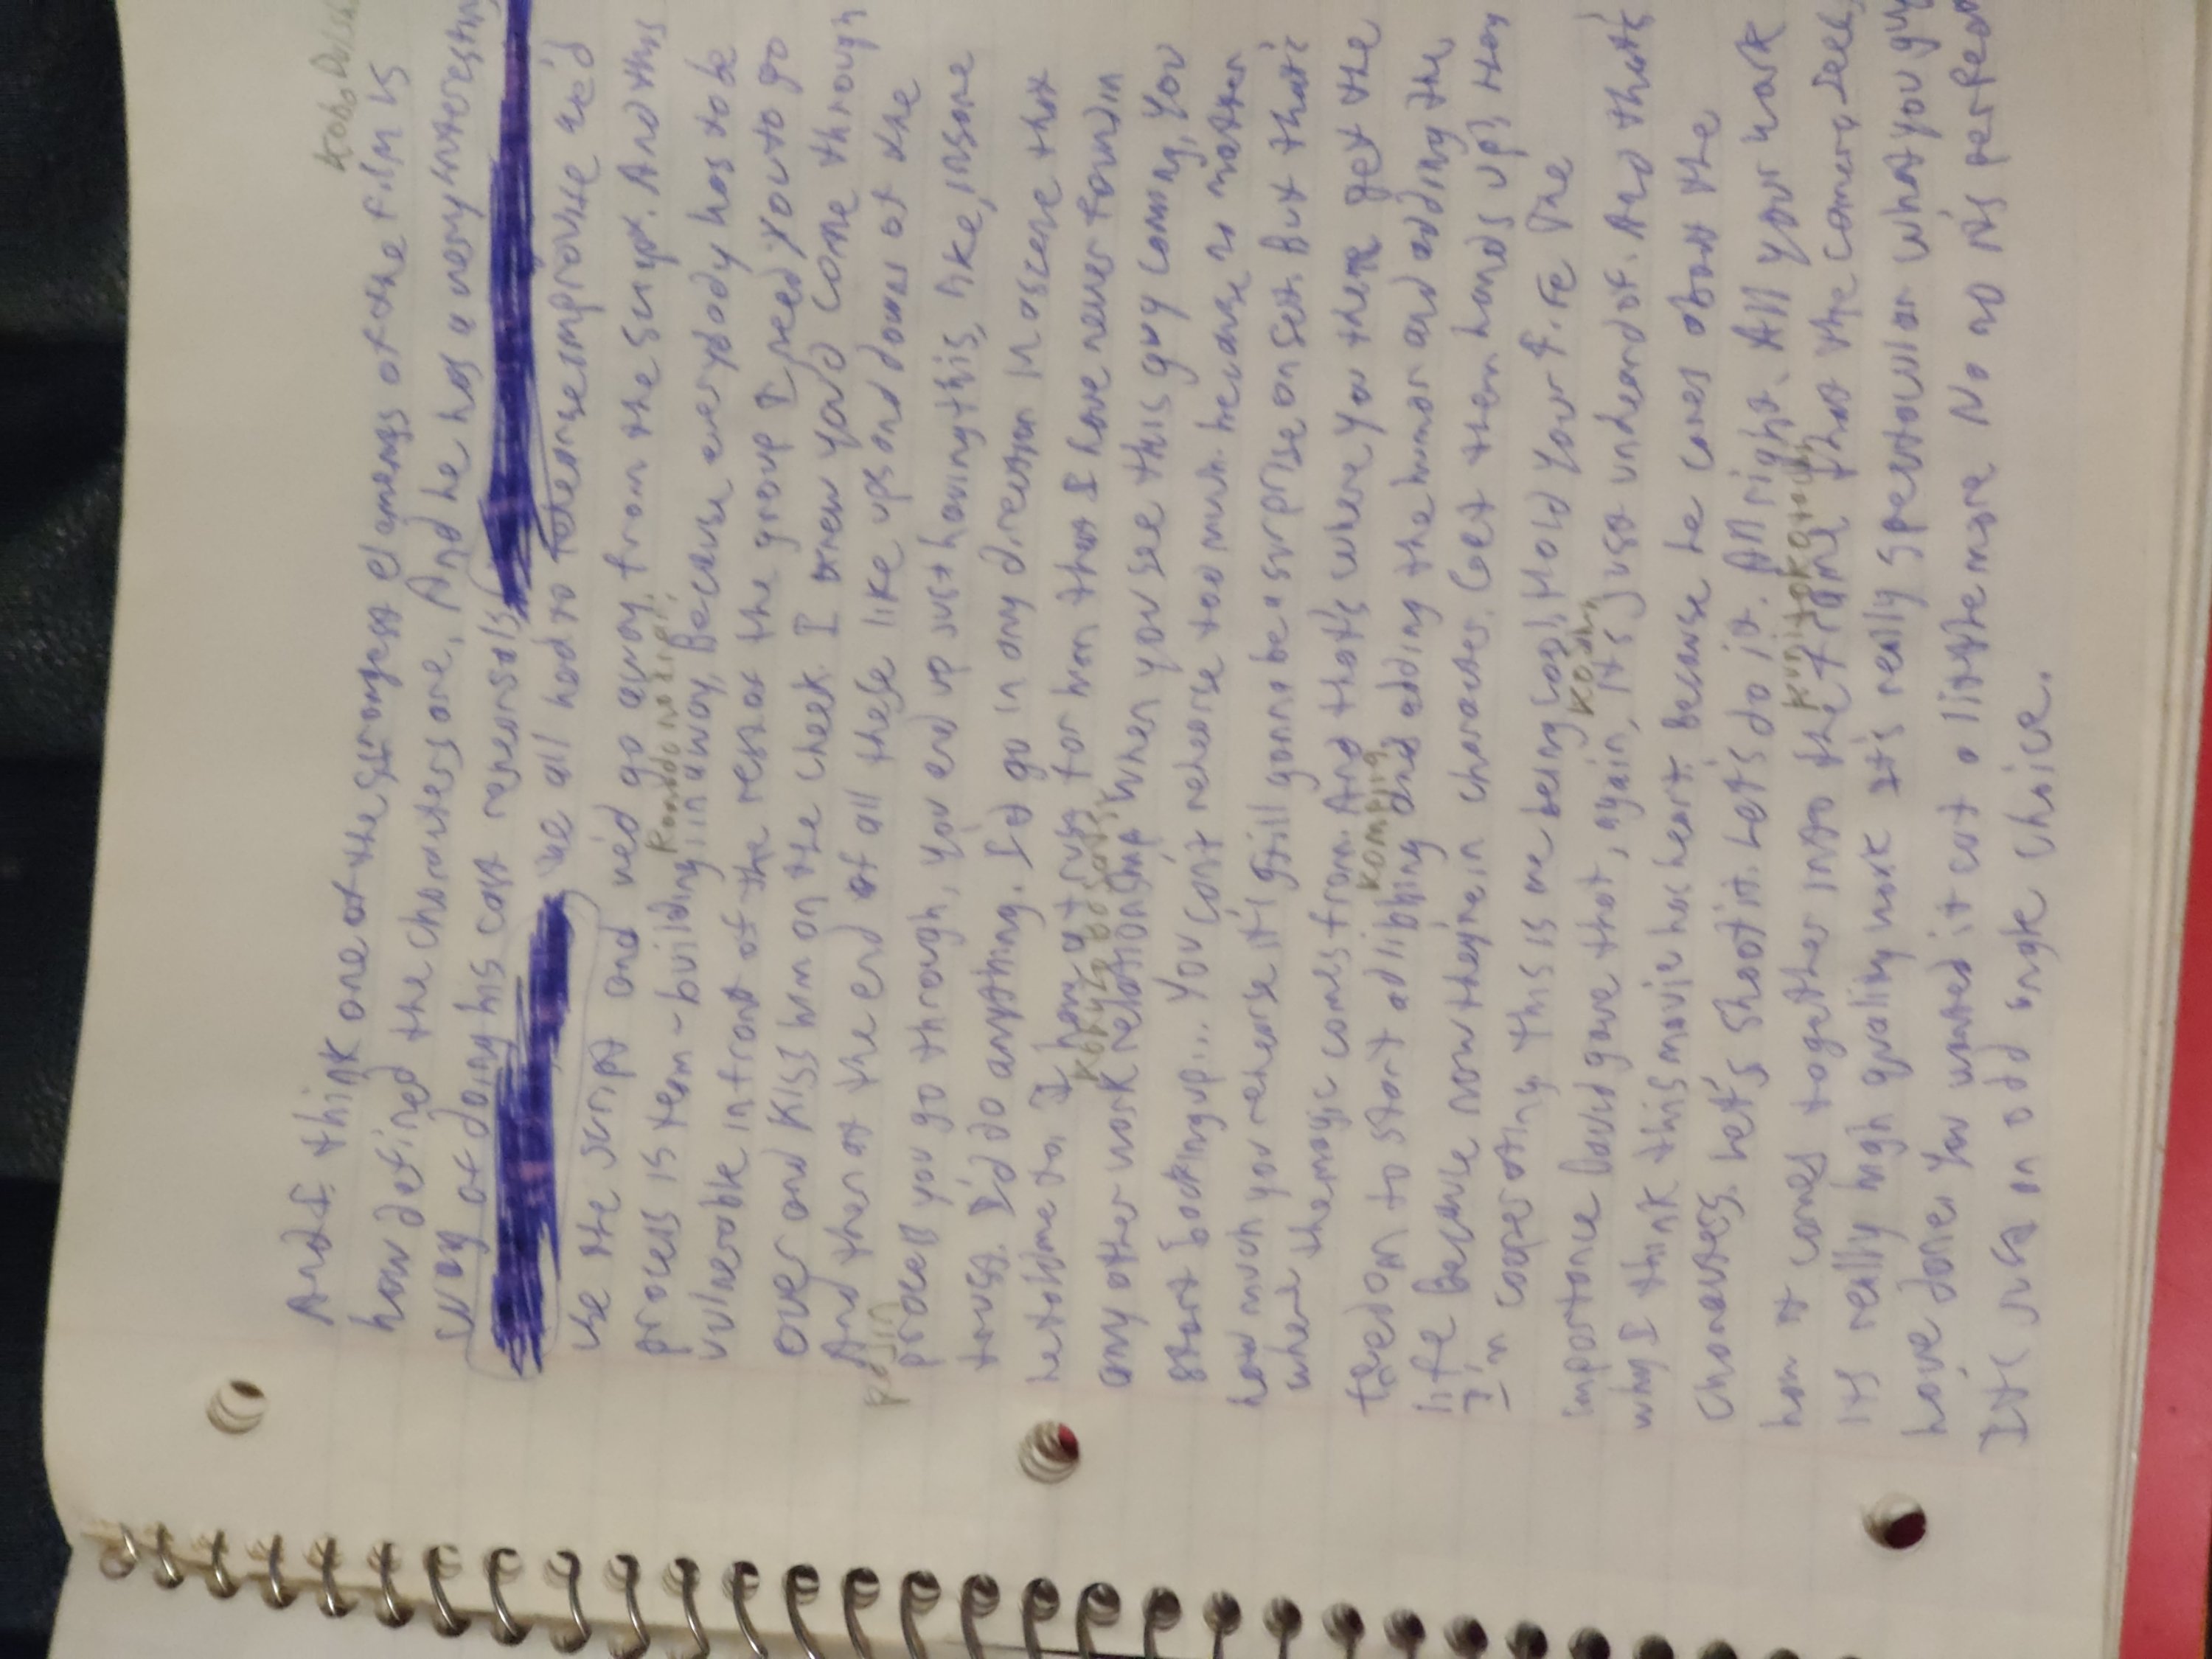 And I think one of the strongest elements of the film is
how defined the characters are. And he has a very interesting
way of doing his cast rehearsals
we all had to improvise we'd
use the script and we'd go away from the script. And this
process is team-building in a way, Because everybody has to be
vulnerable in front of the rest of the group I need you to go
over and kiss him on the cheek. I knew you'd come through
And then at the end of all these like ups and downs of the
process you go through, you end up just having this, like, insane
trust. I'd do anything. I'd go in any direction in a scene that
he told me to. I have a trust for him that I have never found in
any other work relationship When you see this guy coming, you
start backing up... You can't rehearse too much because no matter
how much you rehearse it's still gonna be a surprise on set. But that's
where the magic comes from. And that's where you there get the
freedom to start adlibbing and adding the humor and adding the
life Because now they're in character. Get them hands up! Hey
I'm cooperating, this is me being cool, Hold your fire The
importance David gave that, again, it's just unheard of. And that's
why I think this movie has heart Because he cares about the
characters. Let's shoot it. Let's do it. All right. All your work
how it comes together into the frame that the camera sees,
it's really high quality work It's really spectacular what you guys
have done. You wanted it cut a little more No no it's perfect
It's just an odd angle choice.